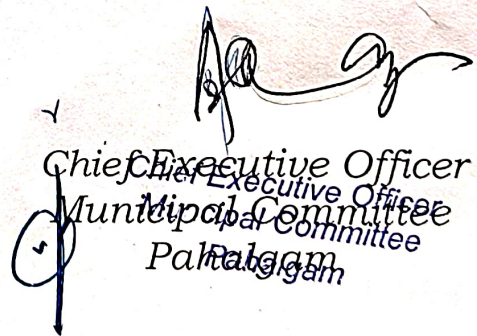 Chief Executive Officer
Municipal Committee
Pahalgam
Chief Executive Officer
Municipal Committee
Pahalgam